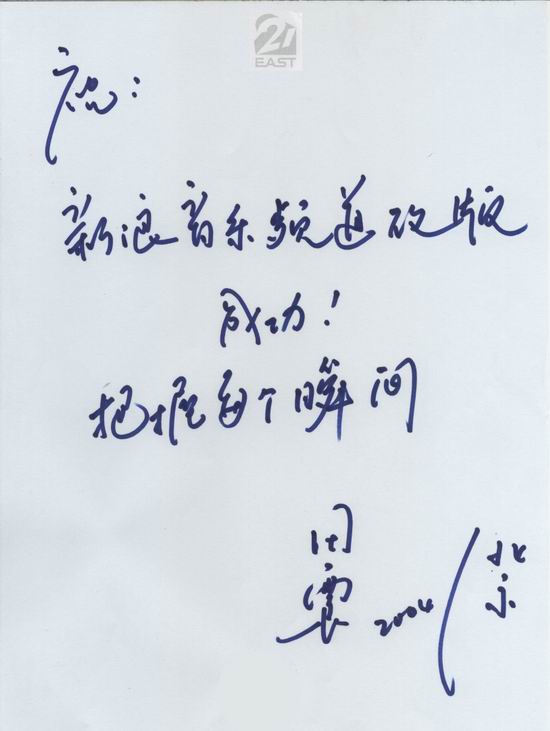 21
EAST
祝:
新浪音乐频道改版
成功!
把握每个瞬间
2004/北京